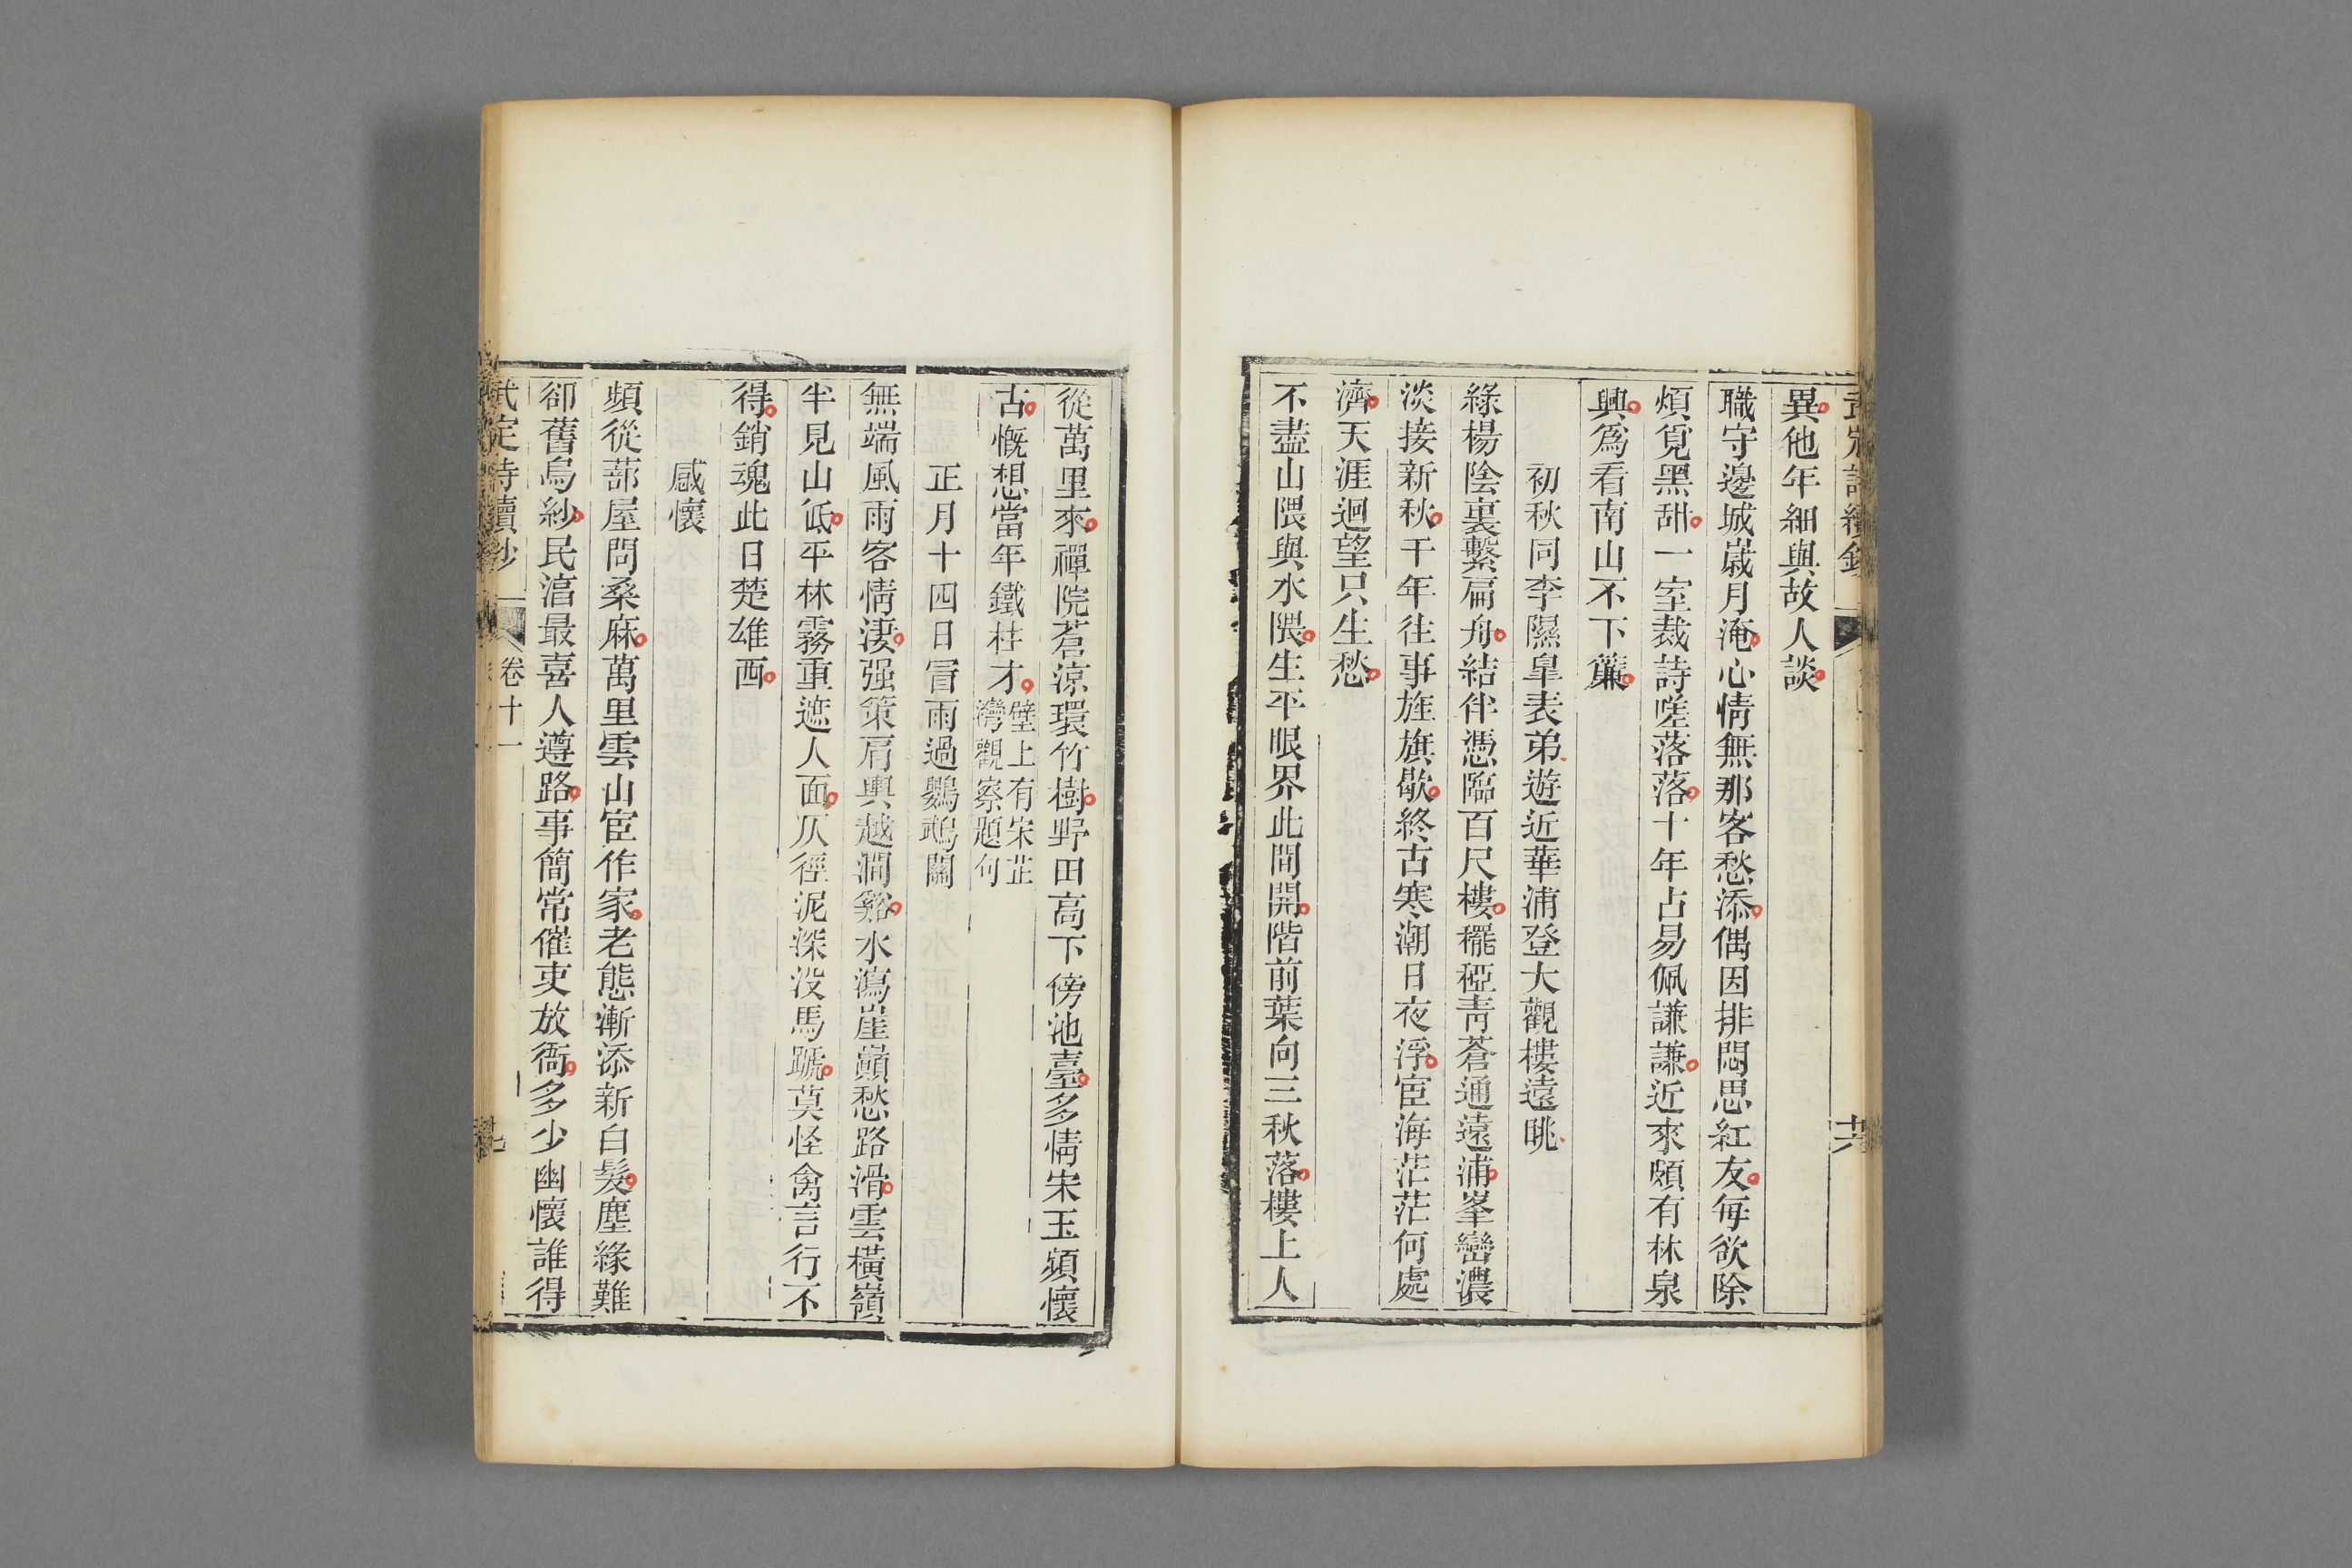 異他年細與故人談
職守邊城嵗月淹心情無那客愁添偶因排悶思紅友每欲除
煩覓黑甜一室裁詩嗟落落十年占易佩謙謙近來頗有林泉
興爲看南山不下簾
初秋同李隰臯表弟遊近華浦登大觀樓遠眺
綠楊陰裏繫扁舟結伴憑臨百尺樓䆉稏靑蒼通遠浦峯巒濃
淡接新秋千年往事旌旗歇終古寒潮日夜浮宦海茫茫何處
濟天涯迴望只生愁
不盡山隈與水隈生平眼界此間開階前葉向三秋落樓上人
從萬里來禪院蒼涼環竹樹野田高下傍池臺多情宋玉頻懷
古慨想當年鐵柱才壁上有宋芷
灣觀察題句
正月十四日冒雨過鸚鵡關
無端風雨客情淒强策肩輿越澗谿水瀉崖巔愁路滑雲橫嶺
半見山低平林霧重遮人面仄徑泥深没馬蹏莫怪禽言行不
得銷魂此日楚雄西
感懷
頻從蔀屋問桑麻萬里雲山宦作家老態漸添新白髮塵緣難
卻舊烏紗民湻最喜人遵路事簡常催吏放衙多少幽懷誰得
武定詩續鈔 卷十一